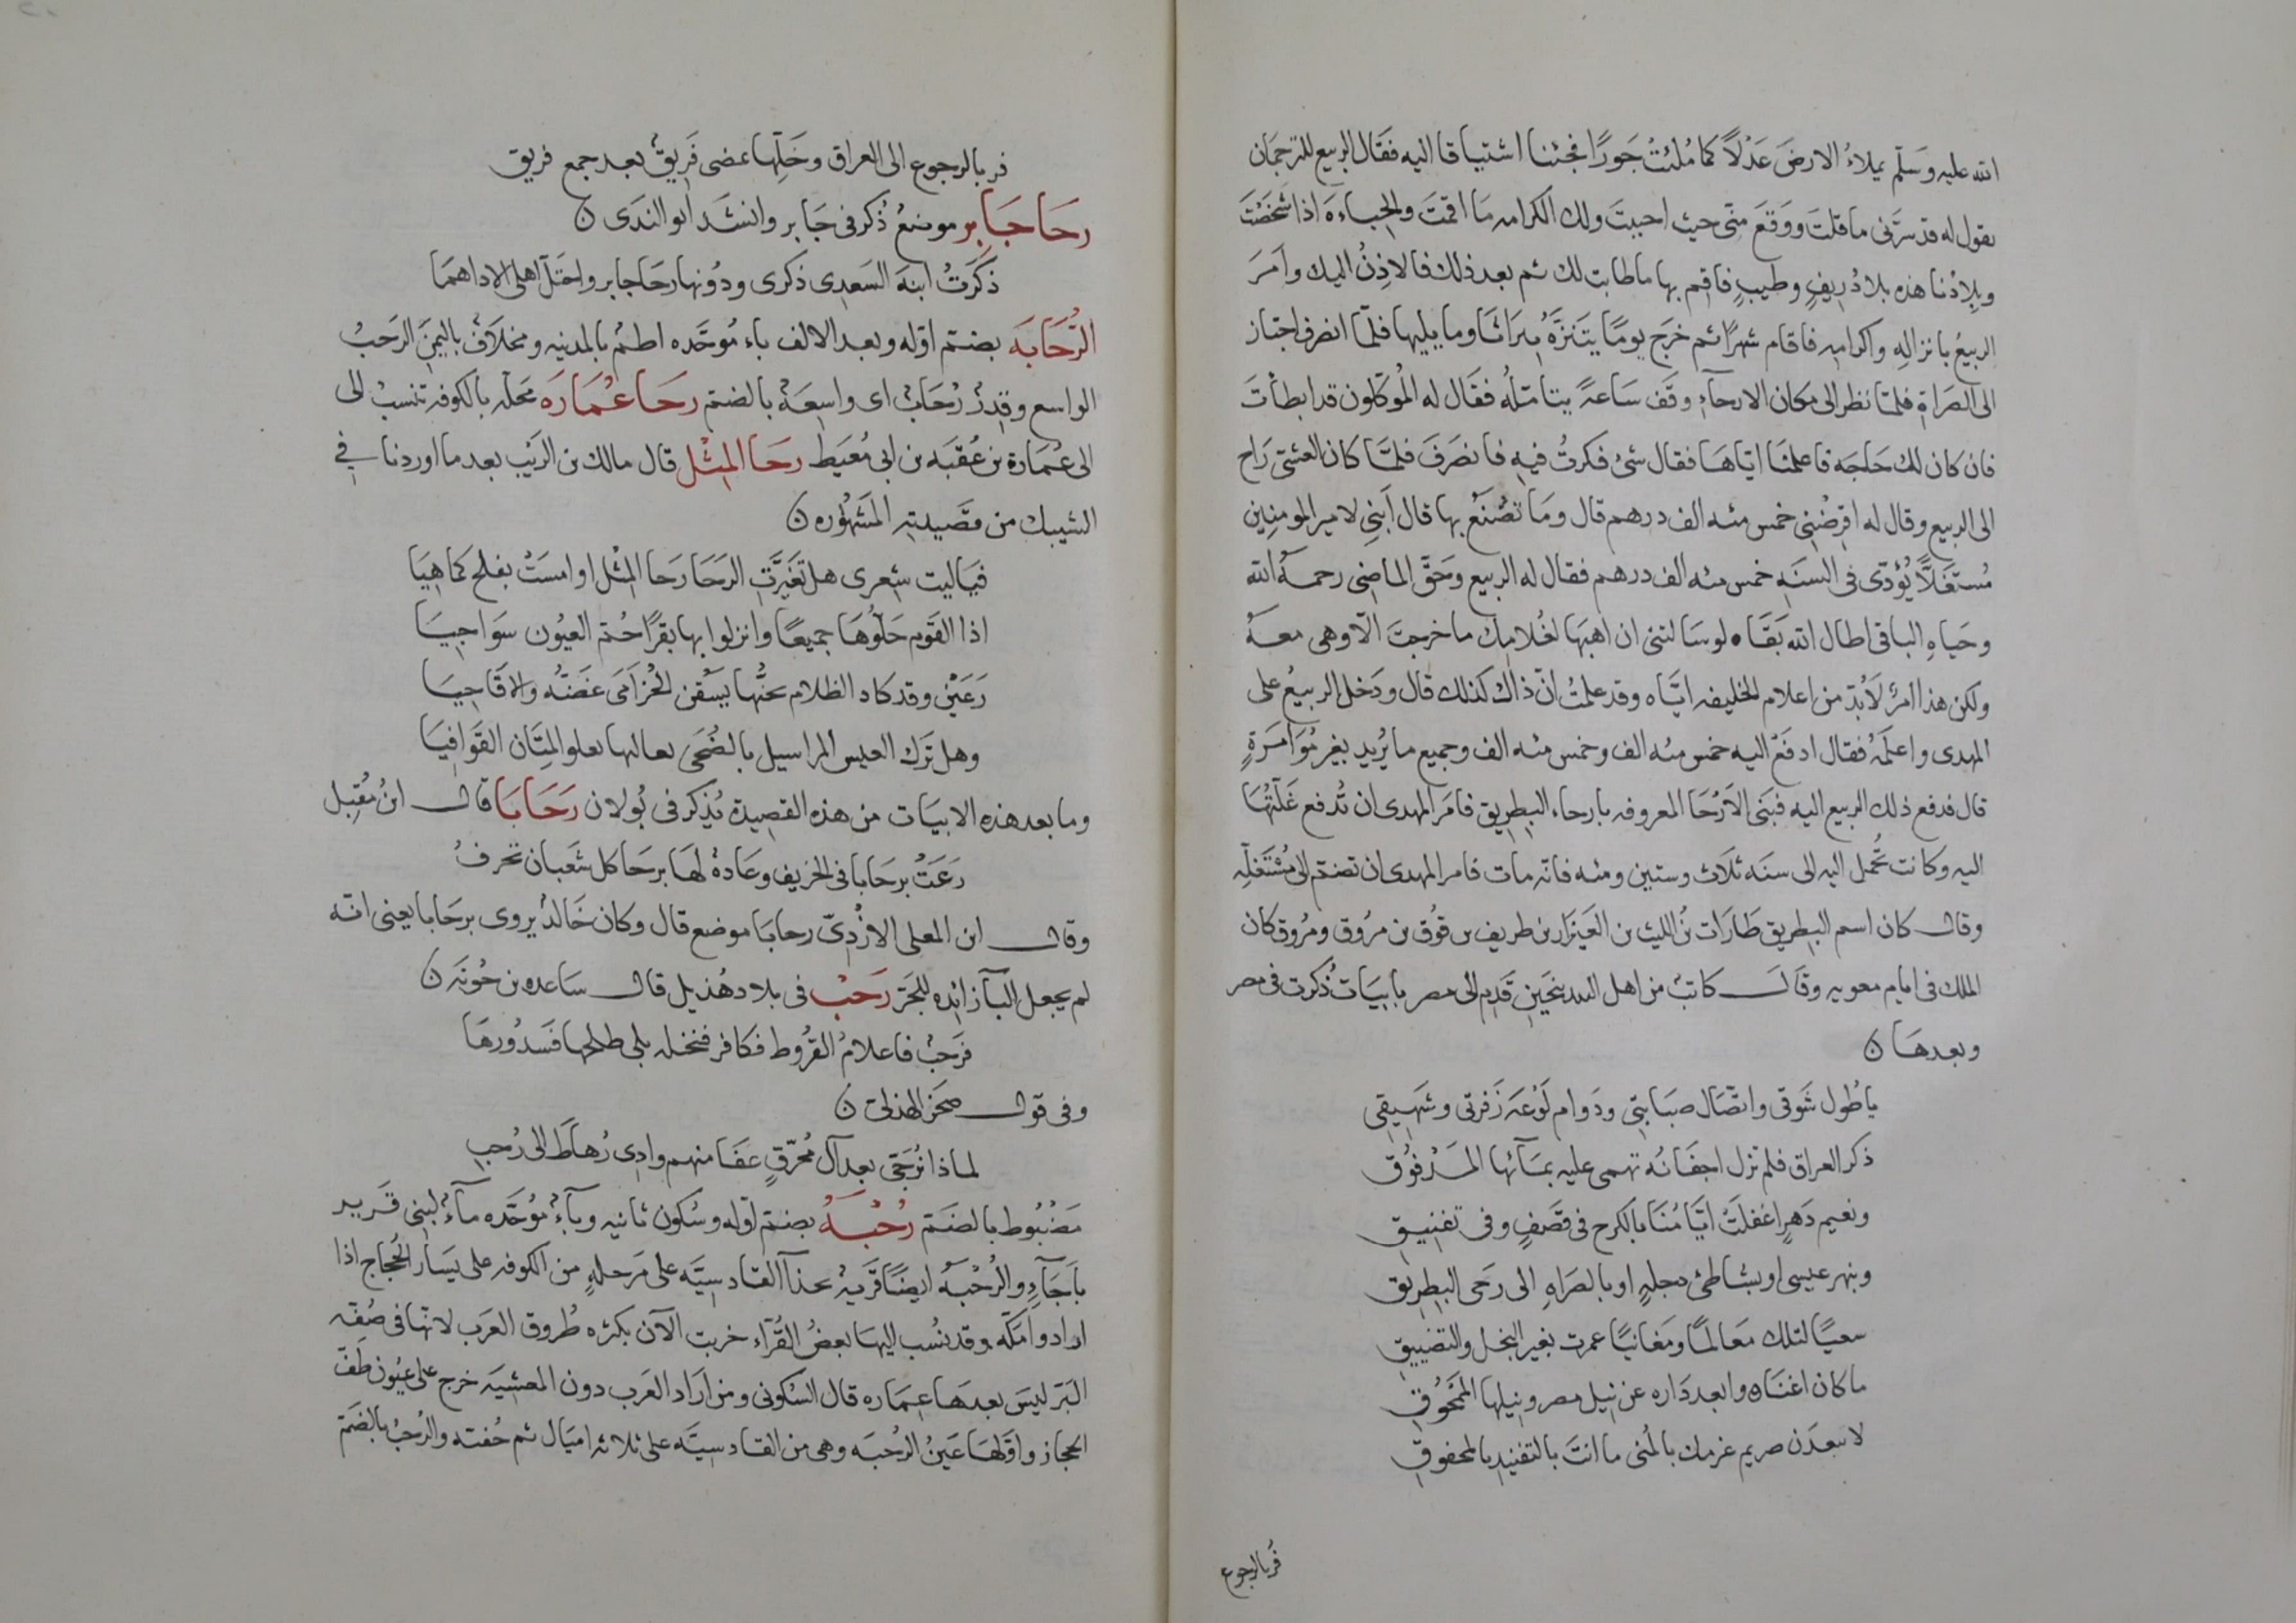 الله عليه وسَلّم يملاءُ الارضَ عَدْلاً كما مُلئتْ جَورًا فجئنا اشتياقا اليه فقَال الربيع للترجمَان
يقول له قد سرَّنى ما قلتَ ووَقعَ منّى حيث احببتَ ولك الكرامه مَا اقمتَ والحباءَ اذا شخَصْتَ
وبلادُنا هذه بلادُ ريفٍ وطيبٍ فاقم بها ما طابت لك ثم بعد ذلك فالاذِنُ اليك وامرَ
الربيعُ بانزالِهِ واكرامِهِ فاقام شهرًا ثم خرَج يومًا يتَنزَّهُ ببَراثا وما يليها فلمّا انصرف اجتاز
الى الصرَاةِ فلمّا نظر الى مكان الارحآءِ وقَف سَاعةً يتأمّلُه فقَال له المُوكّلون قد ابطأتَ
فان كان لك حَاجَه فاعلمْنَا ايّاهَا فقال شىُ فكرتُ فيه فانصَرَفَ فلمَّا كان العشىّ رَاح
الى الربيع وقال له اقرِضْنِى خمس مئه الف درهم قال ومَا تصْنَعُ بها قال اَبنِى لامير المومنِين
مُستَغَلاًّ يُؤدّى فى السنَهِ خمس مئه الف درهم فقال له الربيع وحَقّ الماضِى رحمهُ الله
وحَياهِ الباقى اطال الله بَقَاه لو سَالتنى ان اهبَهَا لغُلامِك ما خرجتَ الّا وهى معهُ
ولكن هذا امرٌ لَابُدّ من اعلام الخليفه ايّاه وقد علمتُ انّ ذاك كذلك قال ودَخل الربيعُ على
المهدى واعلَمَهُ فقال ادفَعْ اليه خمس مئه الف وخمس مئه الف وجميع ما يُريد بغير مُوَامَرَةٍ
قال فدفع ذلك الربيع اليه فبَنى الاَرْحَا المعروفه بارحاء البطريق فامَر المهدى ان تُدفع غَلّتُهَا
اليه وكانت تُحمل اليه الى سنَه ثلَاث وستين ومئه فانّه مات فامر المهدى ان تضمّ الى مُسْتَغلّه
وقال كان اسم البطريق طَارَات بْن الليث بن العَيْزار بن طريف بن قُوق بن مرُوق ومرُوق كان
الملك فى ايام معويه وقَالَ كاتبٌ من اهل البندنيجَين قَدِم الى مصر بابيَات ذُكرت فى مصر
وبعدهَا
يا طُول شَوقى واتصَال صبَابتِى ودَوام لَوْعَهِ زَفرتى وشهِيقِى
ذكر العراق فلم تزل اجفَانُه تهمى عليه بمَآئها المَدْفوُق
ونعيم دَهرٍ اغفلَتْ ايّامُنَا بالكرح فى قصَفٍ وفى تفنِيق
وبنهر عيسى او بشاطئ دجلهٍ او بالصرَاهِ الى رَحى البطريق
سعيًا لتلك مَعَالمًا ومَغانيًا عمرت بغير البخل والتضييق
ما كان اغنَاه وابعد دَاره عن نيل مصر ونيلها الممَحُوقِ
لا تبعدَن صريم عزمك بالمُنى ما انتَ بالتفنيد بالمحقوق
فُر بالرجوع
فر بالرجوع الى العراق وخَلِّها عضى فَريقٌ بعد جمع فريق
رَحَا جَابِر موضعٌ ذُكر فى جَابر وانشَد ابو الندَى
ذكَرتُ ابنهَ السَعدِى ذكرى ودُونها رحَا جابر واحتَلّ اهلى الاداهمَا
الرُّحَابَه بضمّ اوّله وبعد الالف باء مُوحّده اطم بالمدينه ومخلَافٌ باليمن الرَحبُ
الواسع وقِدرٌ رُحَابٌ اى واسِعَهٌ بالضم رَحَا عُمَارَه محَله بالكوفه تنسبُ الى
الى عُمارة بن عُقبَه بن ابى مُعَيط رحَا المِثْل قال مالك بن الرَيْب بعد ما اوردنا فى
الشيبك من قصَيدتِهِ المَشهُوره
فيَاليت شِعرى هل تغيّرَتِ الرَحَا رحَا المِثْل او امسَتْ بفلح كما هِيَا
اذا القَوم حَلّوهَا جميعًا وانزلوا بها بقَرًا حُمّ العيُون سوَاجيَا
رَعَيْن وقد كاد الظلام يحنُّها يَسُقن الخُزامَى غَضَّه والاقَاحيَا
وهل تَرَك العيس المراسيل بالضُحَى تعاليها تعلو المِتَان القوَافيَا
وما بعد هذه الابيَات من هذه القصِيدة يُذكر فى بُولان رَحَابَا قال ابنُ مُقبِل
رَعَتْ برحَابا فى الخريف وعَادهٌ لهَا برحَا كل شَعبان تخرفُ
وقال ابن المعلى الازْدِىّ رحابَا موضع قال وكان خَالدٌ يروى برحَابا يعنى انه
لم يجعل البآ زائده للجرّ رَحْبٌ فى بلاد هُذيل قال سَاعده بن جُويَه
فرَحبٌ فاعلامُ القرُوط فكافر فنخله بلى طلحها فَسَدُورهَا
وفى قول صخر الهذلى
لماذا نُرجّى بعد آل مُحرّقٍ عفَا منهم وادى رُهاطَ الى رُحب
مَضْبُوط بالضَمّ رُحْبَهُ بضمّ اوله وسُكون ثانيه وبآءٌ مُوحَّده مآءٌ لبنى فَريد
باَجَآءِ والرُحْبَهُ ايضًا قَريهٌ بحذآ القادسيَّه على مَرحلهٍ من الكوفه على يَسار الحُجاج اذا
ارادوا مَكّه وقد نُسب اليهَا بعضُ القُرآء خربت الآن بكثره طُروق العَرب لانّها فى ضفَّه
البَرّ ليسَ بعدهَا عِمَاره قال السُكونى ومن ارَاد العَرب دون المعيشه خرج على عيُون طفّ
الحجاز واوّلهَا عَينُ الرُحبَه وهى من القادسيَّه على ثلاثه اميَال ثم خُفته والرُحبُ بالضَمّ